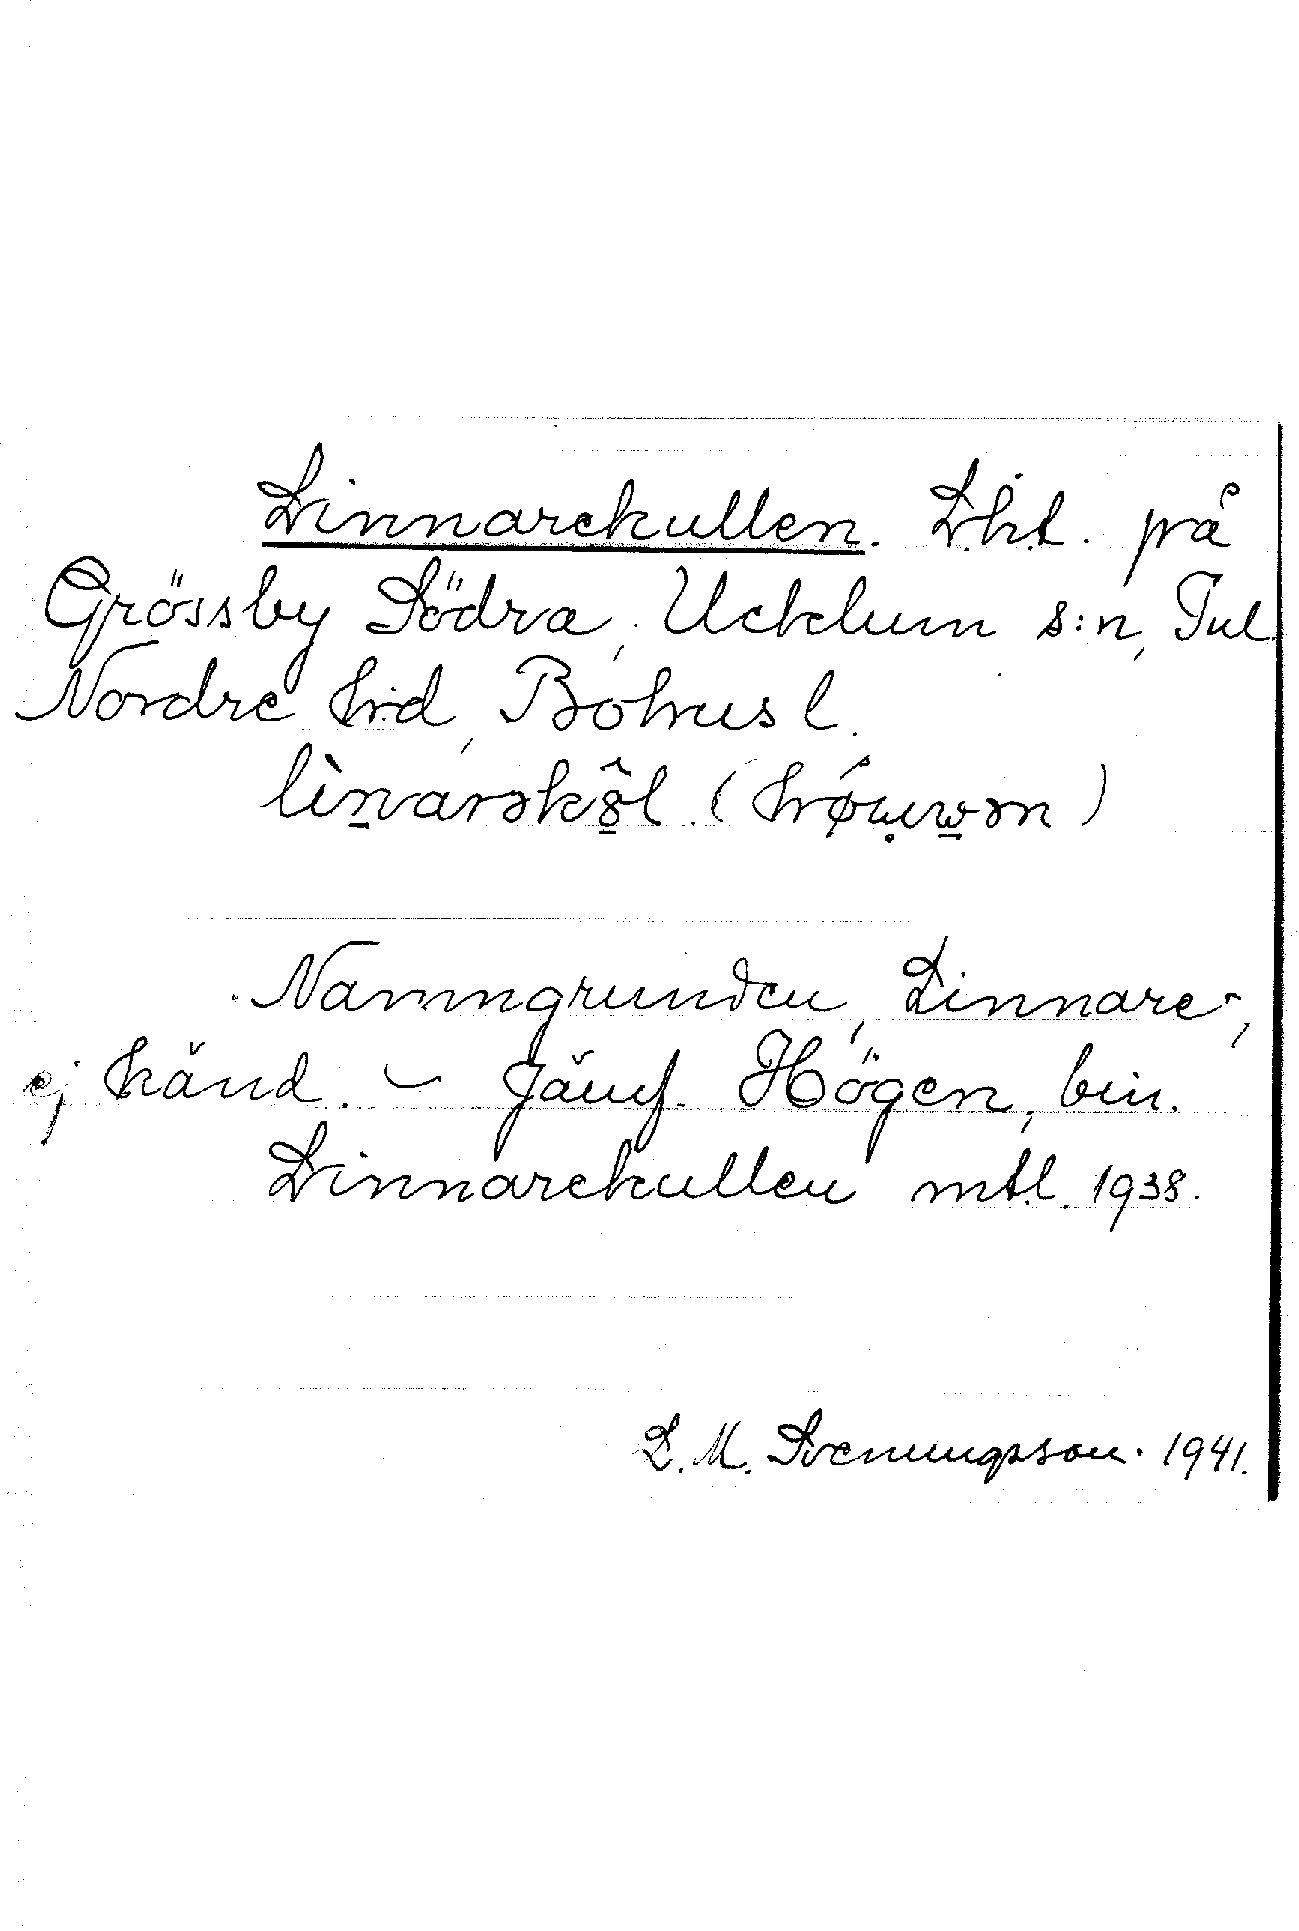 Linnarekullen. Lht. på
Grössby Södra, Ucklum s:n, Inl.
Nordre hd, Bohusl.
Namngrunden, Linnare-,
ej känd. – Jämf. Högen, bin.
Linnarekullen mtl. 1938.
S. M. Svenungsson. 1941.